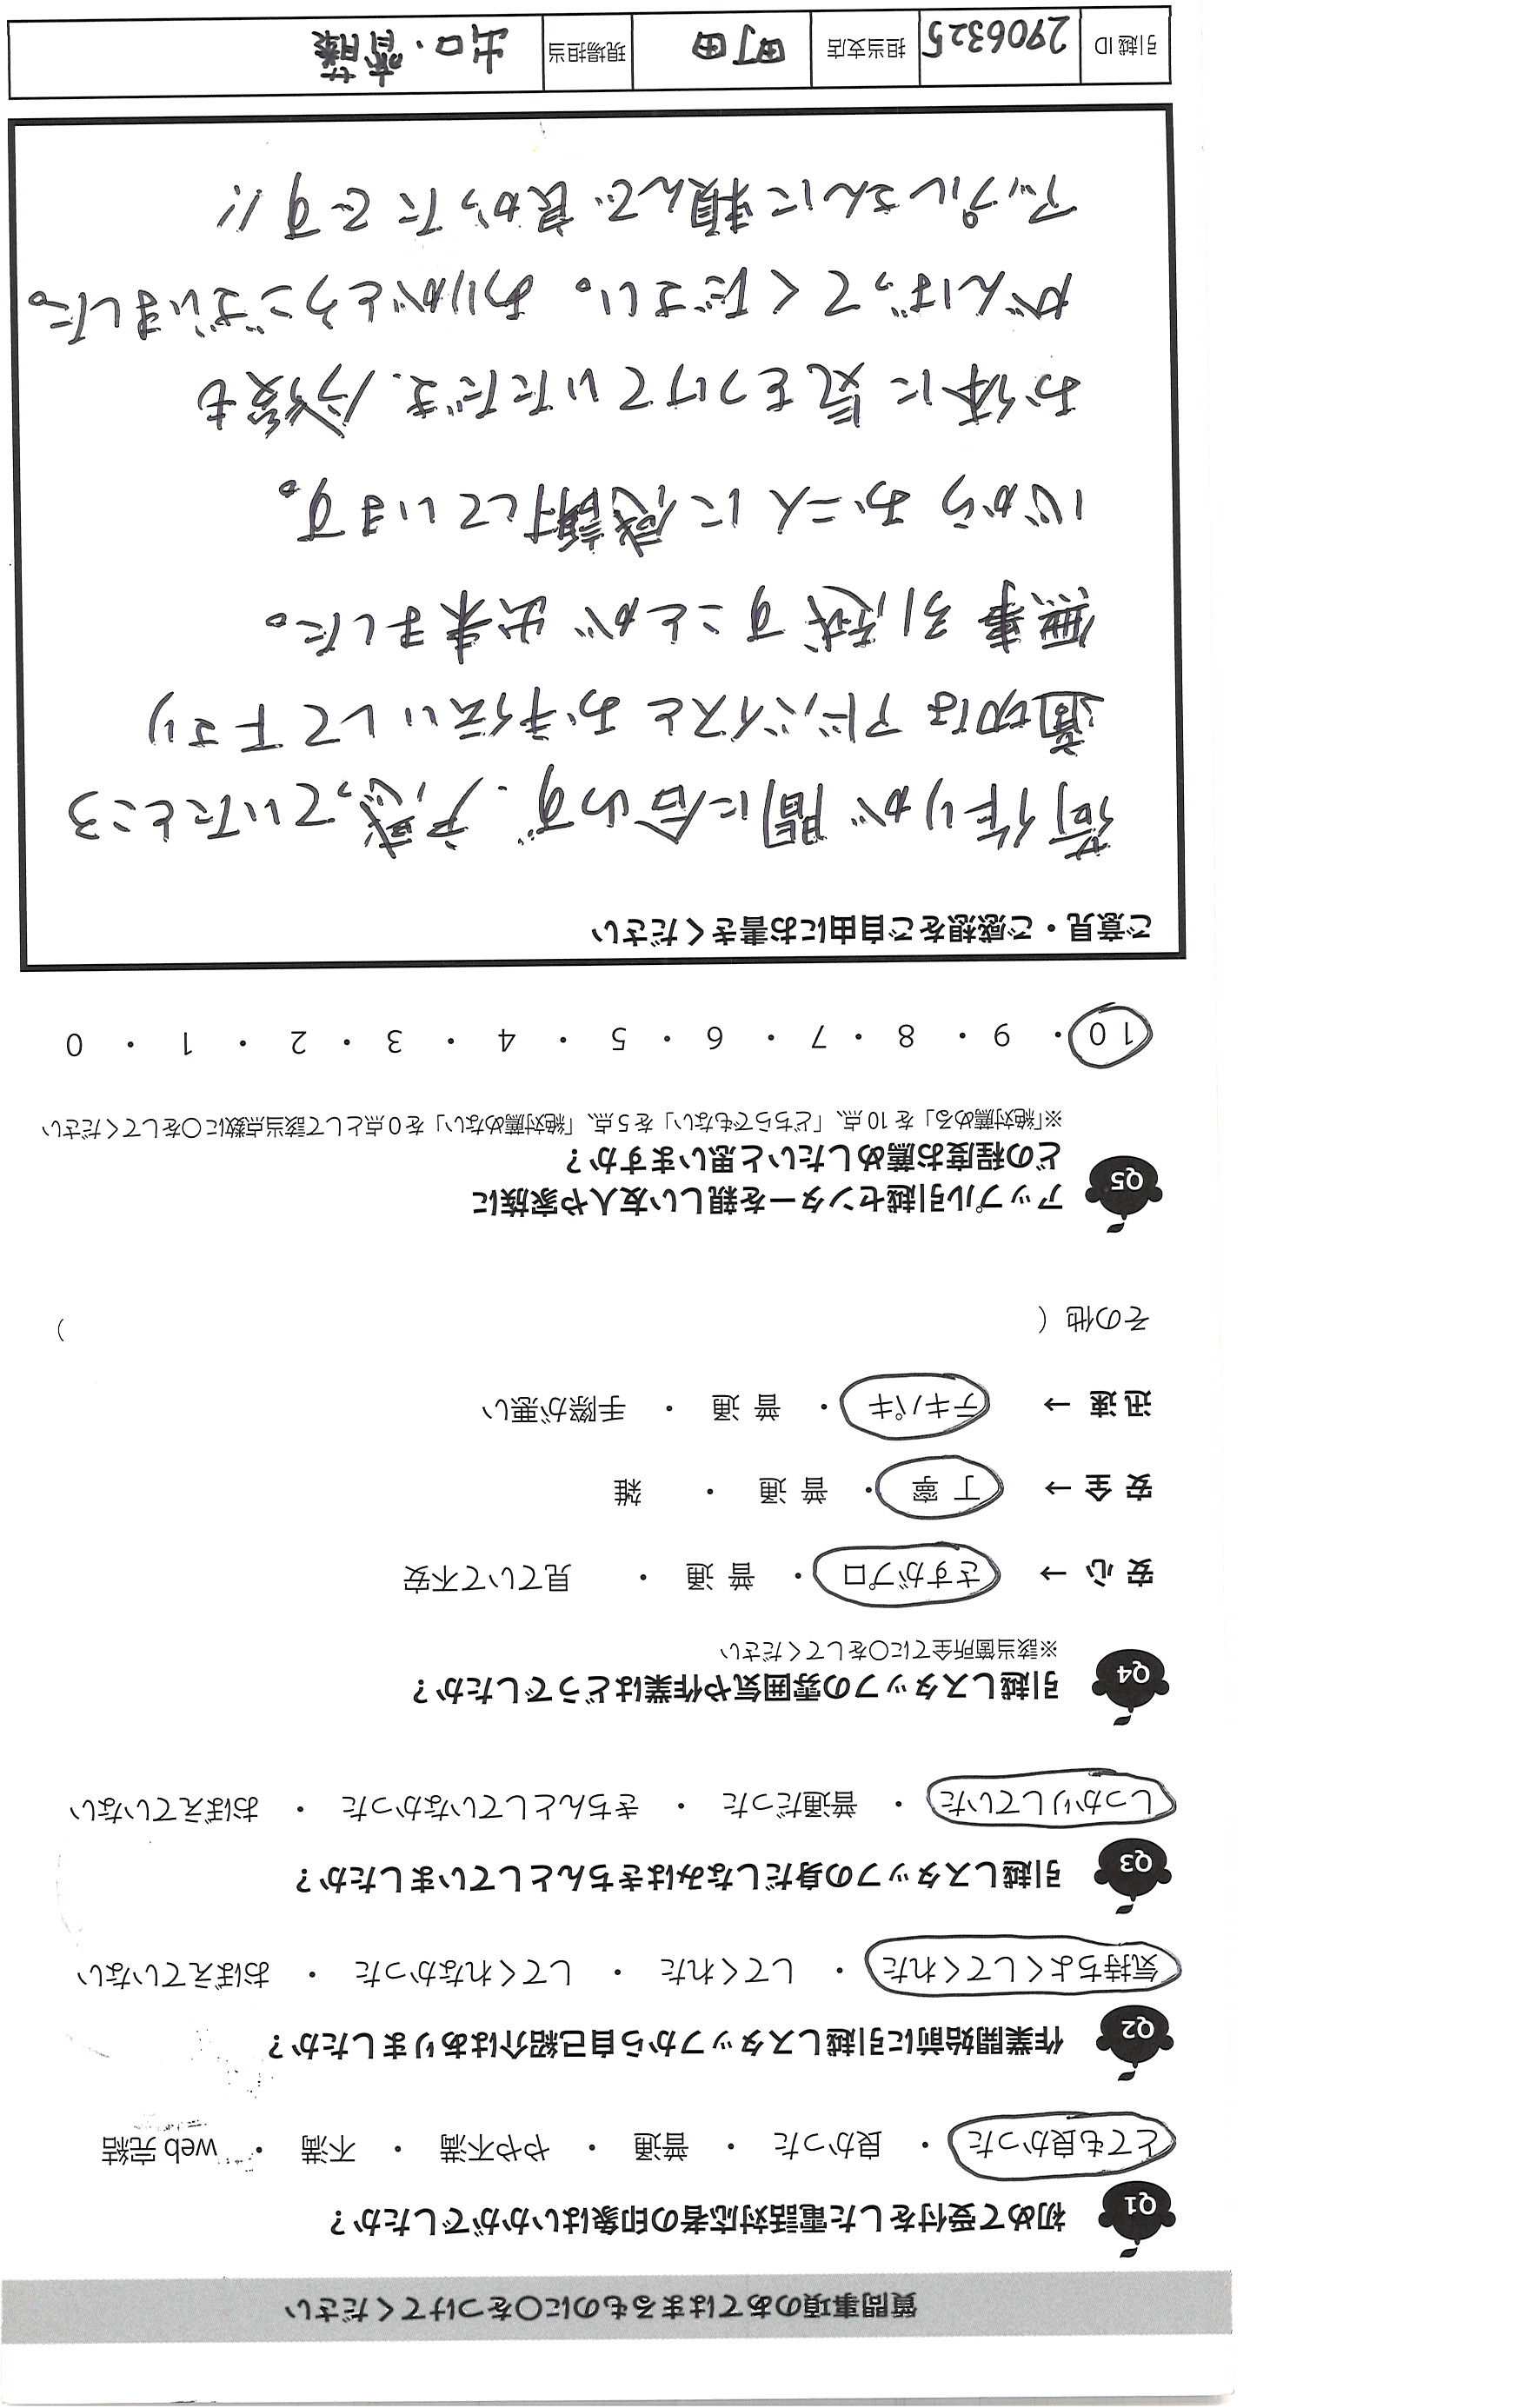 質問事項のあてはまるものに〇をつけてください
Q1 初めて受付をした電話対応者の印象はいかがでしたか？
とても良かった ・ 良かった ・ 普通 ・ やや不満 ・ 不満 ・ web 完結
Q2 作業開始前に引越しスタッフから自己紹介はありましたか？
気持ちよくしてくれた ・ してくれた ・ してくれなかった ・ おぼえていない
Q3 引越しスタッフの身だしなみはきちんとしていましたか？
しっかりしていた ・ 普通だった ・ きちんとしていなかった ・ おぼえていない
Q4 引越しスタッフの雰囲気や作業はどうでしたか？
※該当箇所全てに〇をしてください
安 心 → さすがプロ ・ 普 通 ・ 見ていて不安
安 全 → 丁 寧 ・ 普 通 ・ 雑
迅 速 → テキパキ ・ 普 通 ・ 手際が悪い
その他（ ）
Q5 アップル引越センターを親しい友人や家族に
どの程度お薦めしたいと思いますか？
※「絶対薦める」を 10 点、「どちらでもない」を 5 点、「絶対薦めない」を 0 点として該当点数に〇をしてください
10 ・ 9 ・ 8 ・ 7 ・ 6 ・ 5 ・ 4 ・ 3 ・ 2 ・ 1 ・ 0
ご意見・ご感想をご自由にお書きください
荷作りが間に合わず、戸惑っていたところ
適切なアドバイスとお手伝いして下さり
無事引越すことが出来ました。
心からお二人に感謝しています。
お体に気をつけていただき、今後も
がんばってください。ありがとうございました。
アップルさんに頼んで良かったです!!
引越 ID 2906325 担当支店 町田 現場担当 出口・齋藤